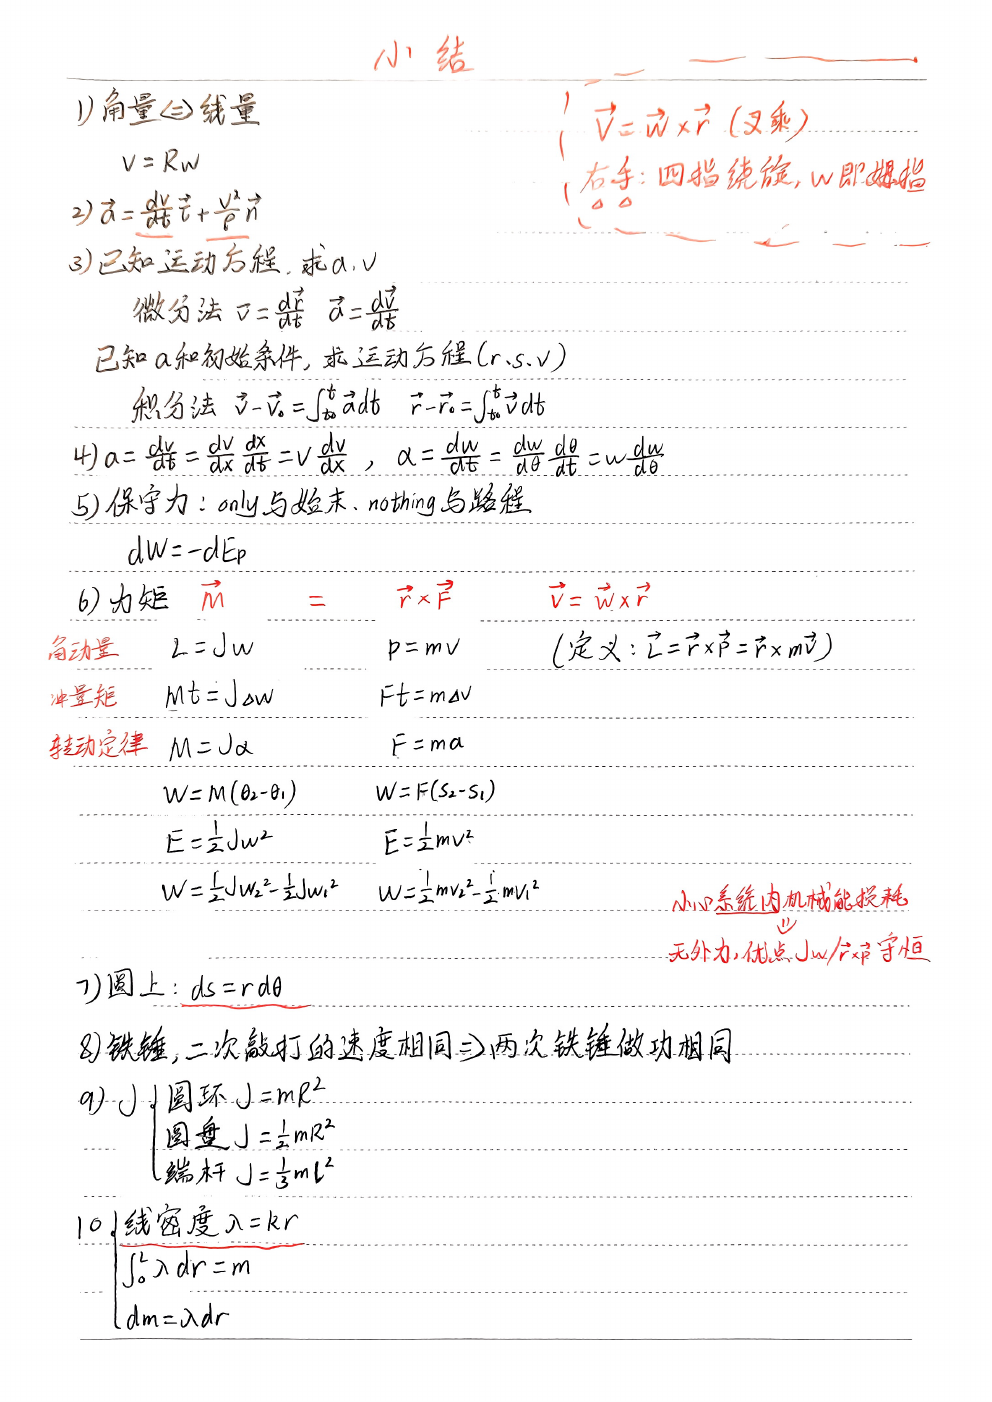 小结
1) 角量⇔线量
v = Rw
v⃗ = w⃗ × r⃗ (叉乘)
右手: 四指绕旋, w即拇指
2) a⃗ = dv/dt t⃗ + v²/ρ n⃗
3) 已知运动方程, 求a、v
微分法 v⃗ = dr⃗/dt a⃗ = dv⃗/dt
已知a和初始条件, 求运动方程(r、s、v)
积分法 v⃗ - v⃗₀ = ∫_{t₀}^{t} a⃗dt r⃗ - r⃗₀ = ∫_{t₀}^{t} v⃗dt
4) a = dv/dt = dv/dx dx/dt = v dv/dx , α = dw/dt = dw/dθ dθ/dt = w dw/dθ
5) 保守力: only与始末、nothing与路程
dW = -dEp
6) 力矩 M⃗ = r⃗ × F⃗ v⃗ = w⃗ × r⃗
角动量 L = Jw p = mv (定义: L⃗ = r⃗ × p⃗ = r⃗ × mv⃗)
冲量矩 Mt = JΔw Ft = mΔv
转动定律 M = Jα F = ma
W = M(θ₂-θ₁) W = F(S₂-S₁)
E = ½Jw² E = ½mv²
W = ½Jw₂² - ½Jw₁² W = ½mv₂² - ½mv₁²
小心系统内机械能损耗
⇓
无外力, 优点Jw/r⃗×p⃗守恒
7) 圆上: ds = rdθ
8) 铁锤, 二次敲打的速度相同⇒两次铁锤做功相同
9) J { 圆环 J = mR²
圆盘 J = ½mR²
端杆 J = ⅓mL²
10 { 线密度 λ = kr
∫₀ᴸ λdr = m
dm = λdr